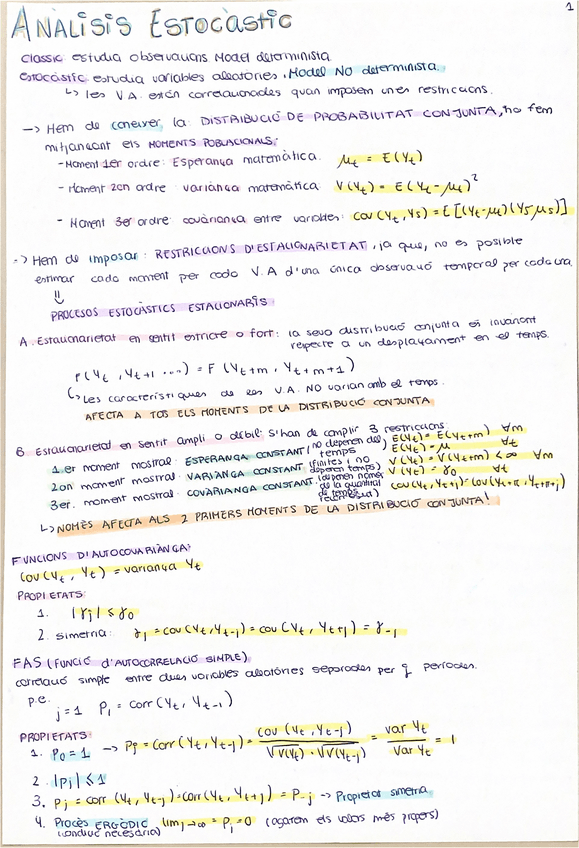 1
ANÀLISIS ESTOCÀSTIC
Clàssic: estudia observacions Model determinista.
Estocàstic: estudia variables aleatòries. Model NO determinista.
↳ les V.A. estan correlacionades quan imposem unes restriccions.
→ Hem de conèixer la DISTRIBUCIÓ DE PROBABILITAT CONJUNTA, ho fem
mitjançant els MOMENTS POBLACIONALS:
- Moment 1er ordre: Esperança matemàtica. μt = E(Yt)
- Moment 2on ordre: variància matemàtica V(Yt) = E(Yt-μt)²
- Moment 3er ordre: covariança entre variables: cov(Yt, Ys) = E[(Yt-μt)(Ys-μs)]
-> Hem de imposar: RESTRICCIONS D'ESTACIONARIETAT, ja que, no és possible
estimar cada moment per cada V.A d'una única observació temporal per cada una.
⇓
PROCESOS ESTOCÀSTICS ESTACIONARIS
A. Estacionarietat en sentit estricte o fort: la seva distribució conjunta és invariant
respecte a un desplaçament en el temps.
F(Yt, Yt+1 ....) = F(Yt+m, Yt+m+1)
↳ Les característiques de les V.A. NO varian amb el temps.
AFECTA A TOS ELS MOMENTS DE LA DISTRIBUCIÓ CONJUNTA
B. Estacionarietat en sentit ampli o dèbil: S'han de complir 3 restriccions:
1.er moment mostral: ESPERANÇA CONSTANT (no depenen del temps) E(Yt) = E(Yt+m) ∀m
E(Yt) = μ ∀t
2on moment mostral: VARIÀNÇA CONSTANT (finites i no depenen temps) V(Yt) = V(Yt+m) < ∞ ∀m
V(Yt) = γ0 ∀t
3er. moment mostral: COVARIÀNÇA CONSTANT (depenen només de la quantitat de temps
↳ NOMÉS AFECTA ALS 2 PRIMERS MOMENTS DE LA DISTRIBUCIÓ CONJUNTA!
FUNCIONS D'AUTOCOVARIÀNÇA:
Cov(Yt, Yt) = variança Yt
PROPIETATS:
1. |γj| ≤ γ0
2. simetria: γj = cov(Yt, Yt-j) = cov(Yt, Yt+j) = γ-j
FAS (FUNCIÓ d'AUTOCORRELACIÓ SIMPLE)
correlació simple entre dues variables aleatòries separades per j períodes.
p.e.
j=1 P1 = corr(Yt, Yt-1)
PROPIETATS
1. P0 = 1 → Pj = corr(Yt, Yt-j) = cov(Yt, Yt-j) / √V(Yt) · √V(Yt-j) = var Yt / Var Yt = 1
2. |Pj| ≤ 1
3. Pj = corr(Yt, Yt-j) = corr(Yt, Yt+j) = P-j → Propietat simetria
4. Procès ERGÒDIC lim j→∞ = Pj = 0 (agarem els valors més propers)
(condició necesària)